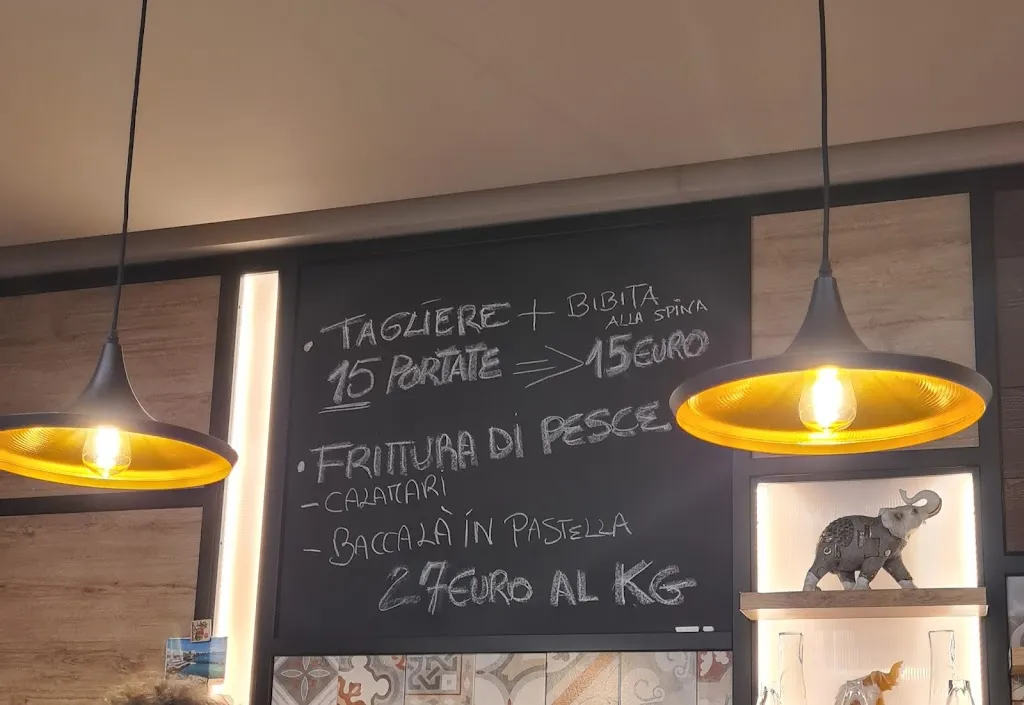 • TAGLIERE + BIBITA ALLA SPINA
15 PORTATE => 15 EURO
• FRITTURA DI PESCE
- CALAMARI
- BACCALÀ IN PASTELLA
27 EURO AL KG